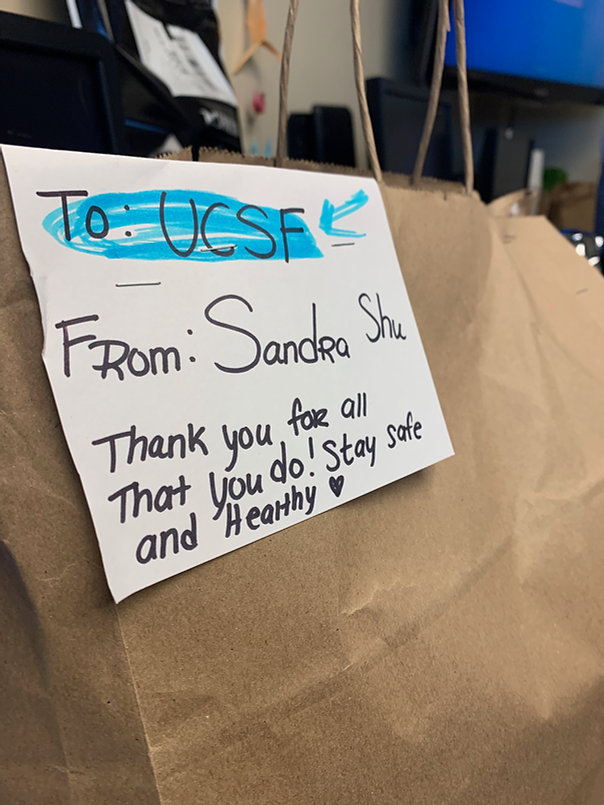 To: UCSF
From: Sandra Shu
Thank you for all
That you do! Stay safe
and Healthy ♥